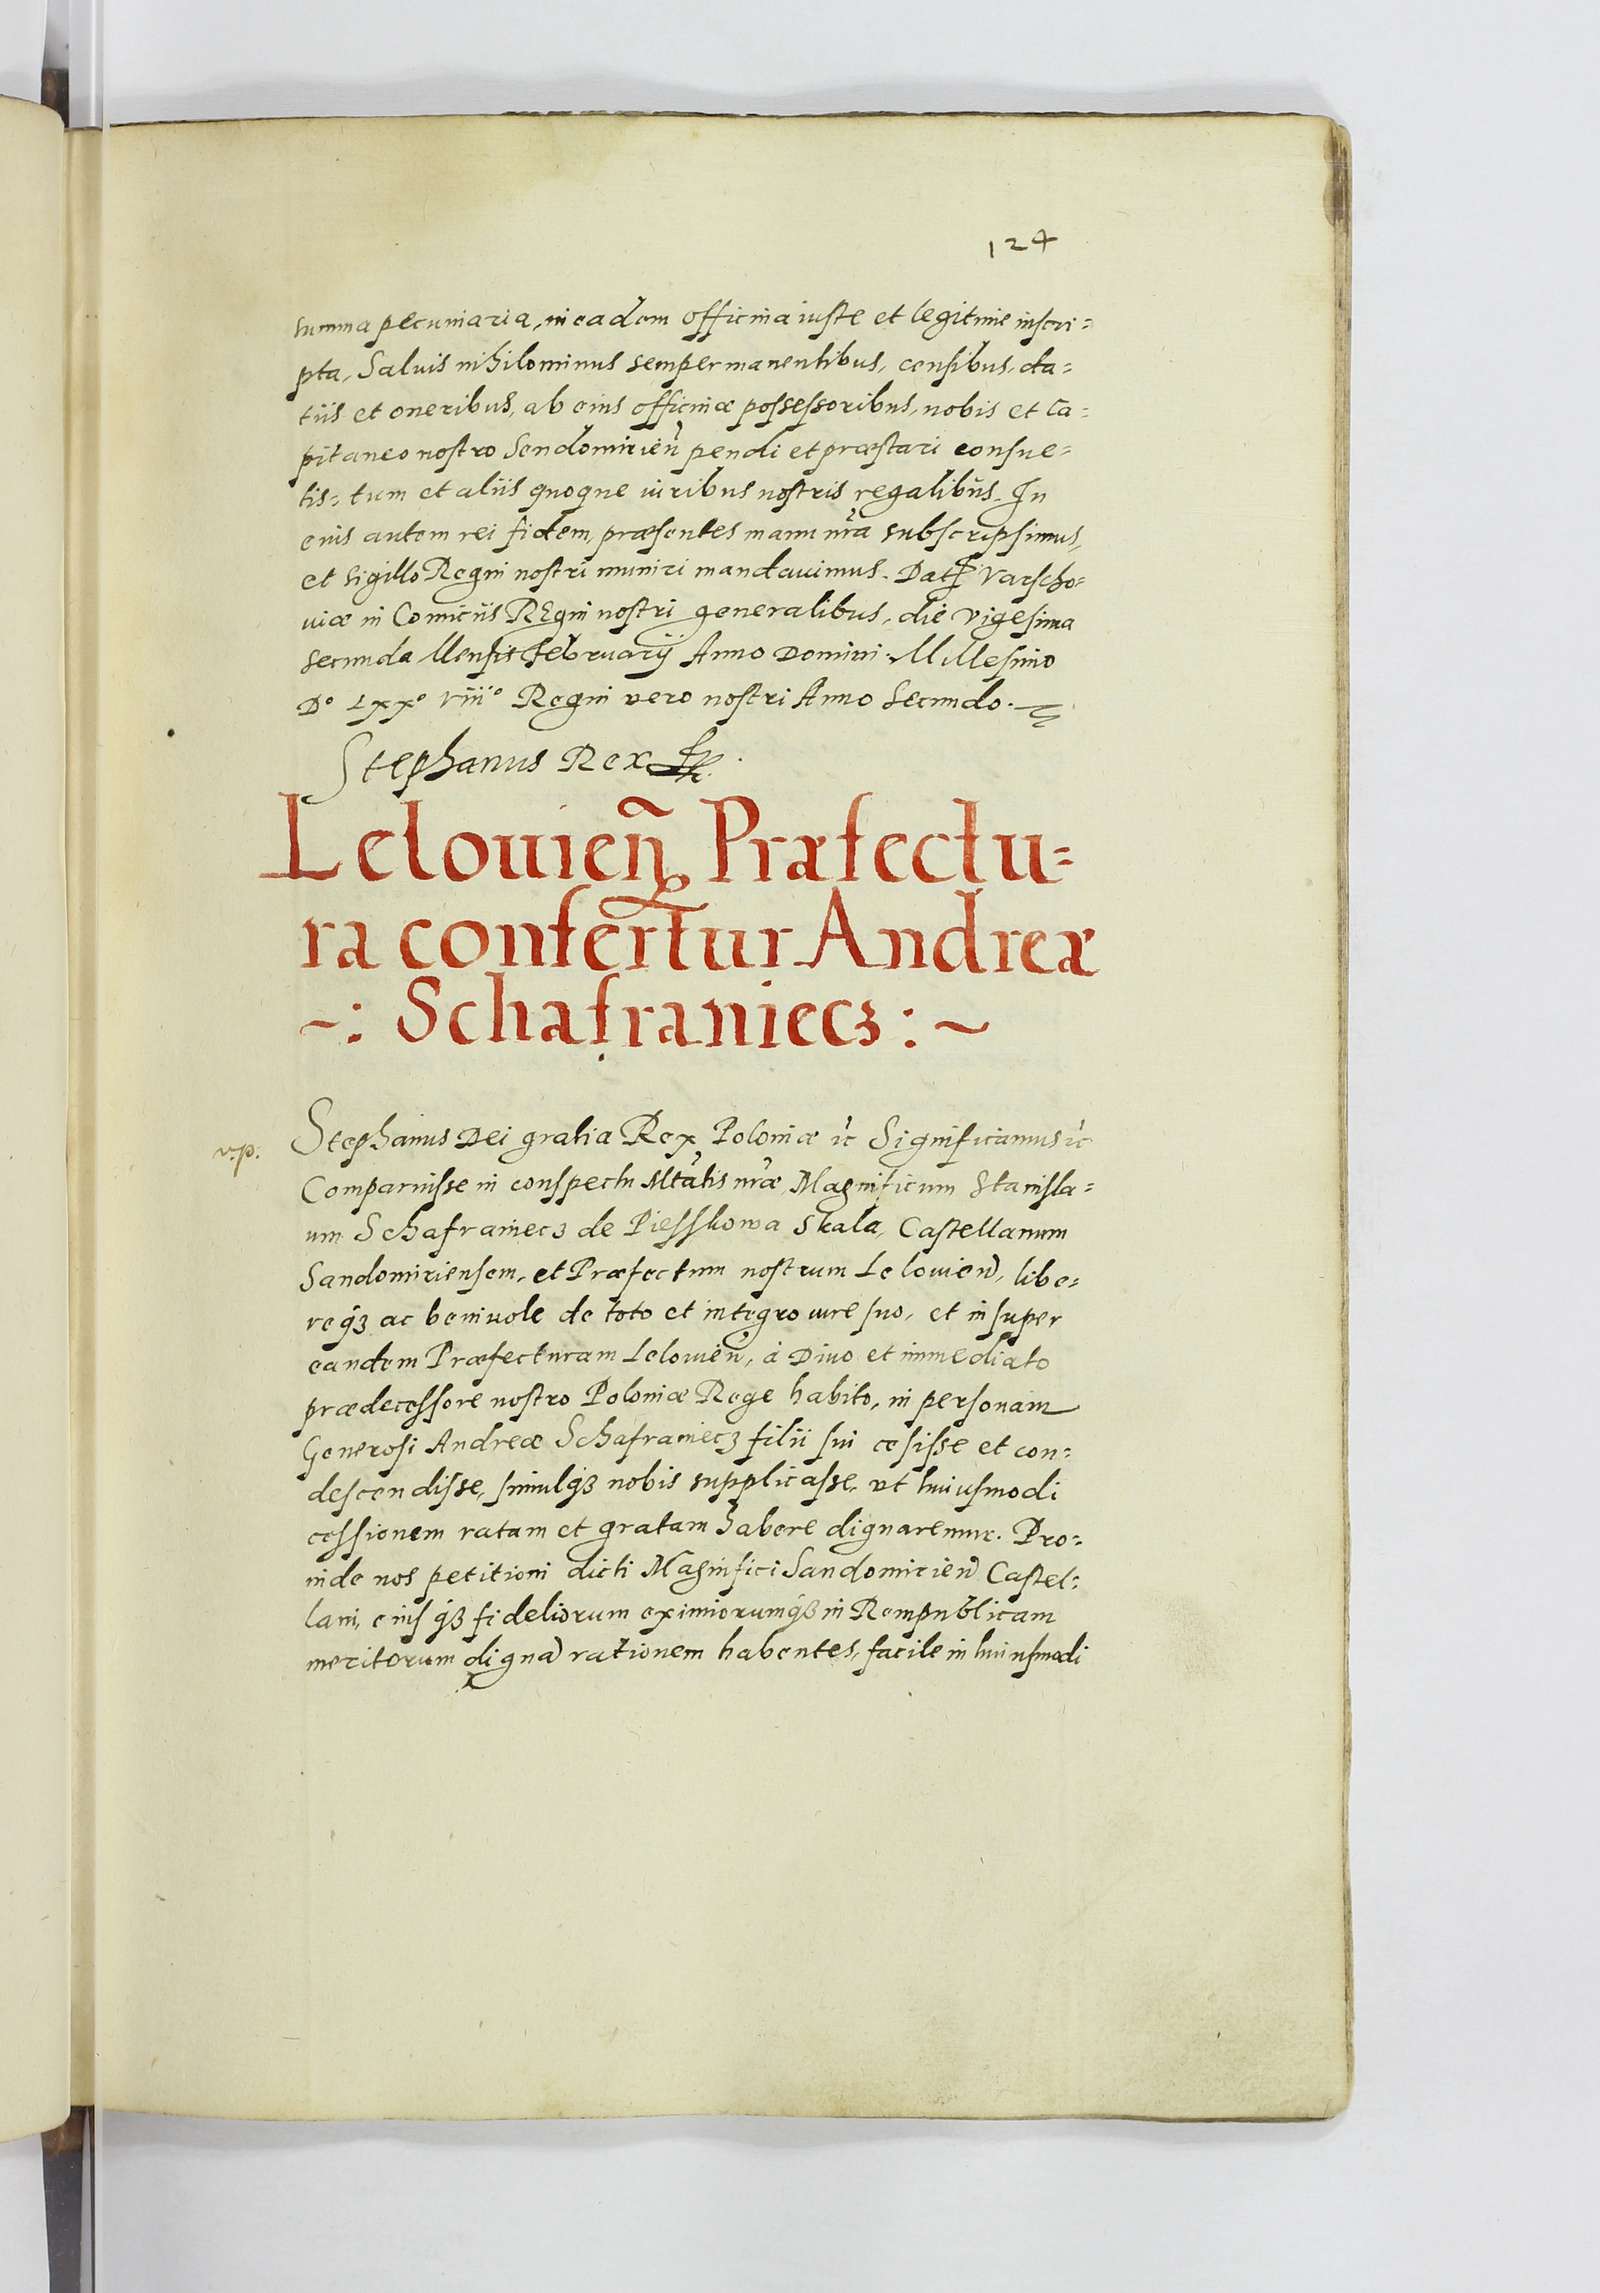 124
summa pecuniaria, in eadem officina iuste et legitime inscri=
pta, Saluis nihilominus semper manentibus, censibus, da=
tiis et oneribus, ab eius officinæ possessoribus, nobis et Ca=
pitaneo nostro Sendomirieñ pendi et præstari consue=
tis, tum et aliis quoque iuribus nostris regalibus. In
cuius autem rei fidem, præsentes manu nr̃a subscripsimus,
et sigillo Regni nostri muniri mandauimus. Dat Varscho=
uiæ in Comiciis REgni nostri generalibus, die vigesima
secunda Mensis Februarij Anno Domini Millesimo
D° LXX° VIII° Regni vero nostri Anno Secundo.
Stephanus Rex
Lelouieñ Præfectu=
ra confertur Andreæ
~: Schafraniecz :~
v.p.
Stephanus Dei gratia Rex Poloniæ ic̃ Significamus ic̃
Comparuisse in conspectu Mtãtis nr̃æ Magnificum Stanisla=
um Schafraniecz de Piesskowa Skala, Castellanum
Sandomiriensem, et Præfectum nostrum Lelouieñ, libe=
reqȝ ac beniuole de toto et integro iure suo, et in super
eandem Præfecturam Lelouieñ, à Diuo et immediato
prædecessore nostro Poloniæ Rege habito, in personam
Generosi Andreæ Schafraniecz filii sui cesisse et con=
descendisse, simulqȝ nobis supplicasse, vt huiusmodi
cessionem ratam et gratam habere dignaremur. Pro=
inde nos petitioni dicti Magnifici Sandomirieñ Castel=
lani, eiusqȝ fideliorum eximiorumqȝ in Rempublicam
meritorum dignã rationem habentes, facile in huiusmodi